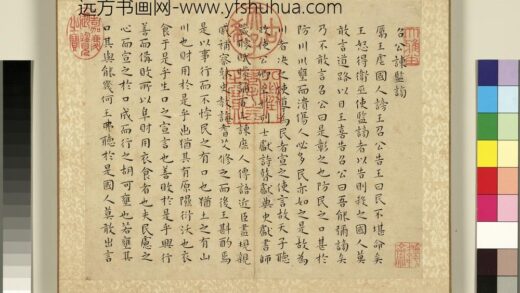 远方书画网-www.yfshuhua.com
召公諫監謗
厲王虐國人謗王召公告王曰民不堪命矣
王怒得衛巫使監謗者以告則殺之國人莫
敢言道路以目王喜告召公曰吾能弭謗矣
乃不敢言召公曰是彰之也防民之口甚於
防川川壅而潰傷人必多民亦如之是故為
川者決之使導為民者宣之使言故天子聽
政使公卿至於列士獻詩瞽獻典史獻書師
箴瞍賦矇誦百工諫庶人傳語近臣盡規親
戚補察瞽史教誨耆艾修之而後王斟酌焉
是以事行而不悖民之有口也猶土之有山
川也財用於是乎出猶其有原隰衍沃也衣
食于是乎生口之宣言也善敗於是乎興行
善而備敗所以阜財用衣食者也夫民慮之
心而宣之於口成而行之胡可壅也若壅其
口其與能幾何王弗聽於是國人莫敢出言